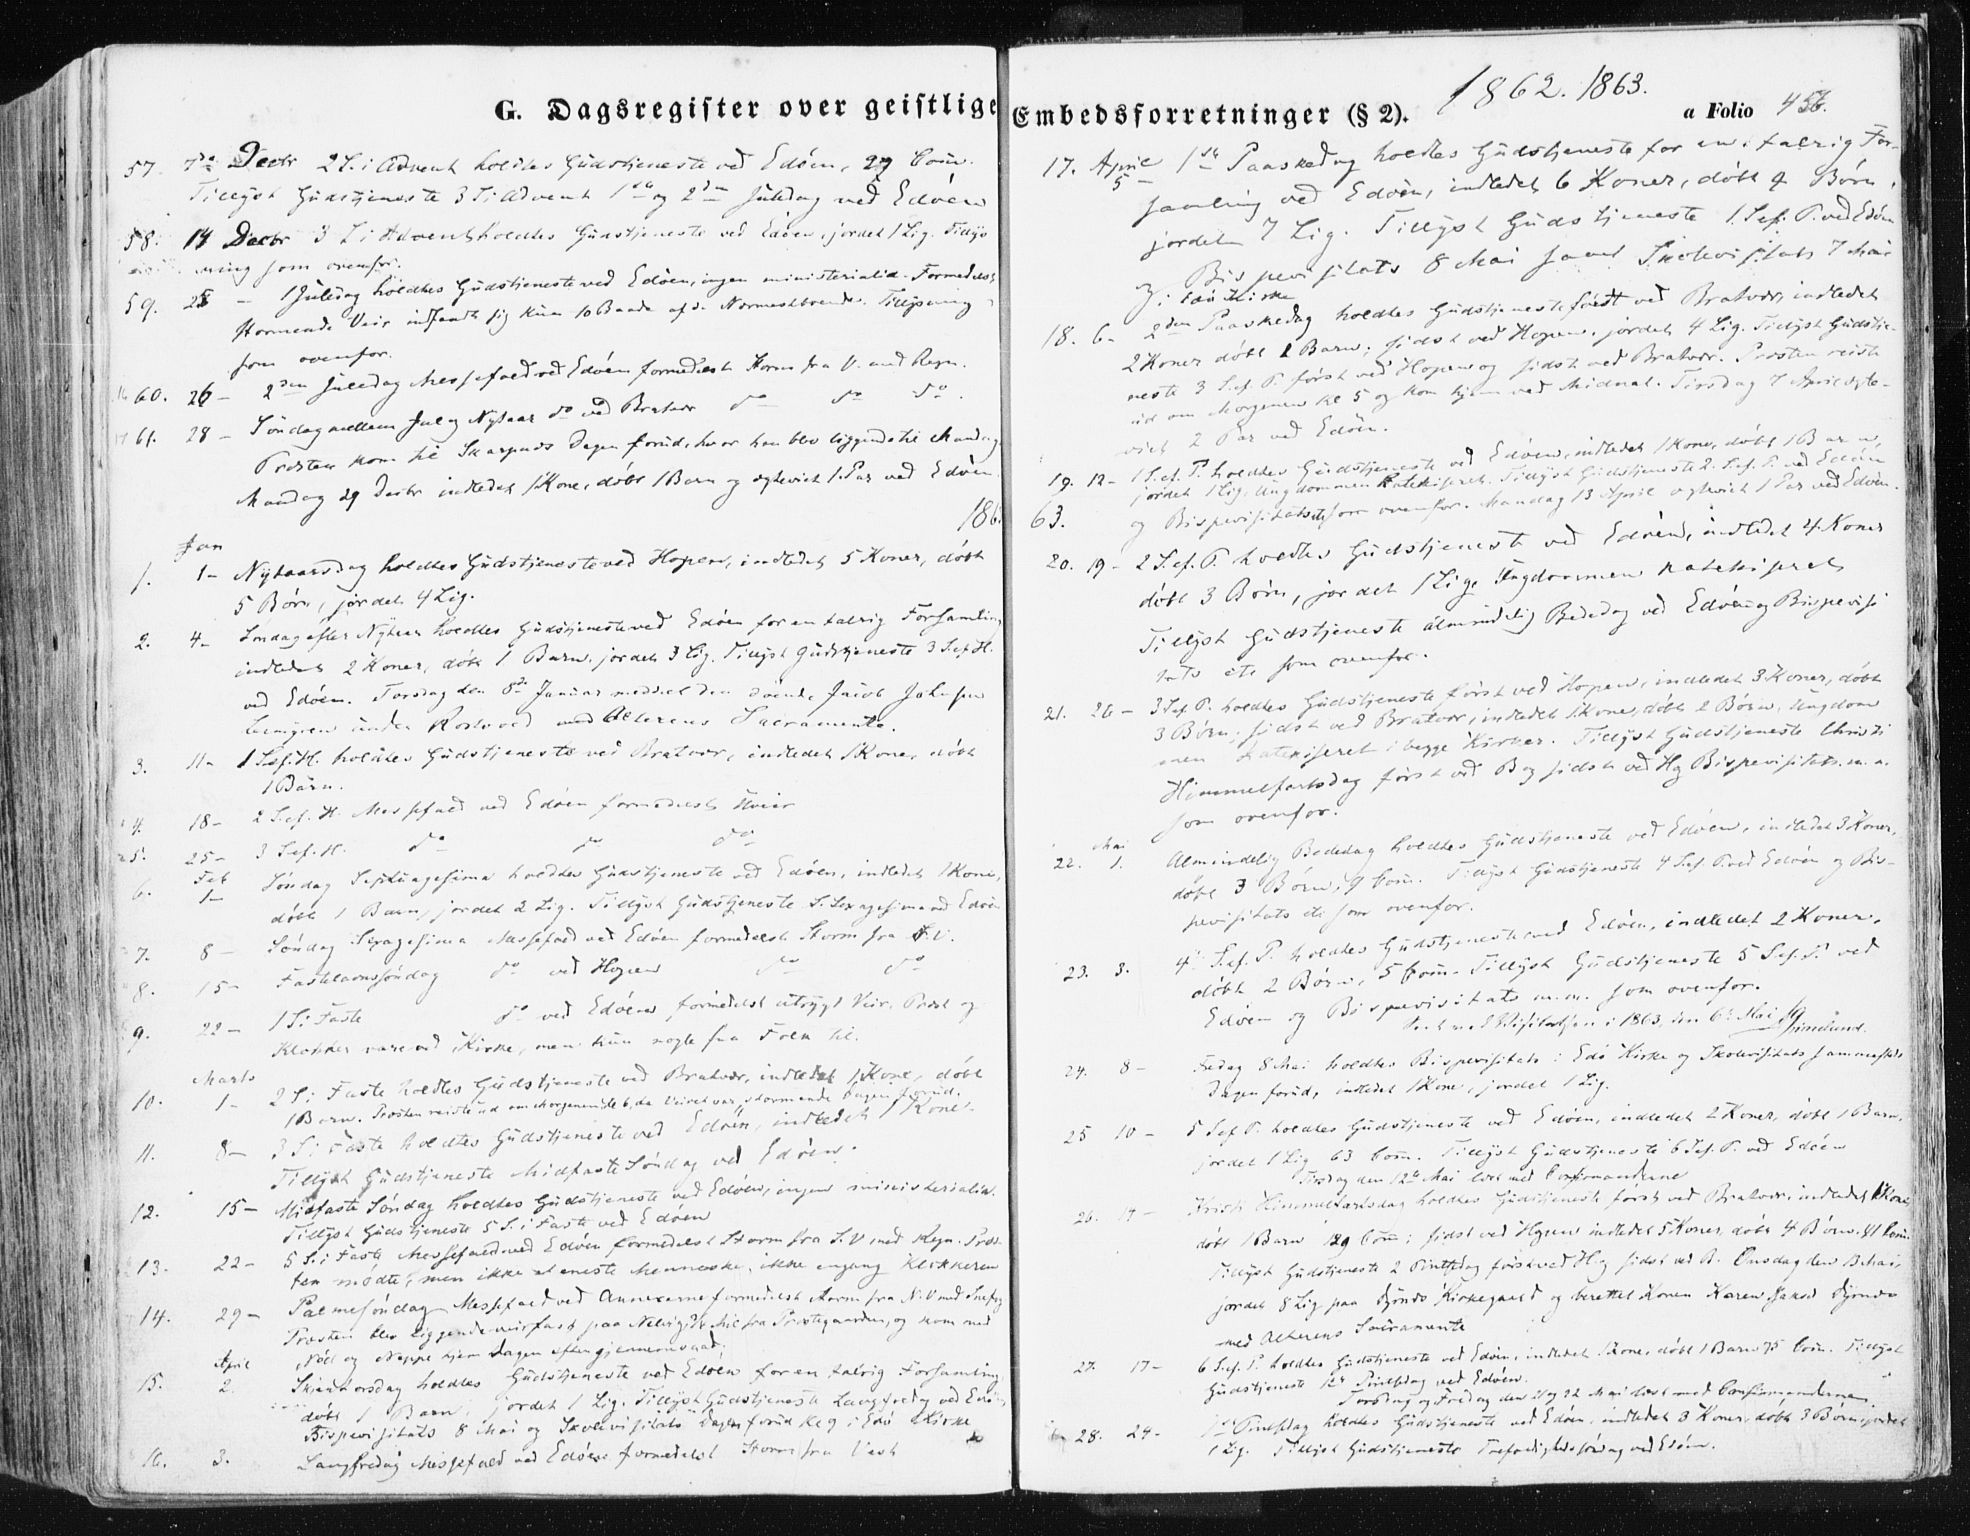 G. Dagsregister over geistlige
57. 7de Decbr 2 S. i Advent holdtes Gudstjeneste ved Edöen, 29 Com.
Tillyst Gudstjeneste 3 S. i Advent 1ste og 2den Juledag ved Edöen
58. 14 Decbr 3 S. i Advent holdtes Gudstjeneste ved Edöen, jordet 1 Lig. Tillys
ning som ovenfor.
59. 25 – 1 Juledag holdtes Gudstjeneste ved Edöen, ingen ministerialia. Formedelst
stormende Veir indfandt sig kun 10 Baade af de Nærmestboende. Tillysning
som ovenfor.
60. 26 – 2den Juledag Messefald ved Edöen formedelst Storm fra V. med Regn.
61. 28 – Söndag mellem Jul og Nytaar do ved Bratvær do do do.
Præsten kom til Skarpnes Dagen forud, hvor han blev liggende til Mandag
Mandag 29 Decbr indledet 1 Kone, döbt 1 Barn og egteviet 1 Par ved Edöen.
186
Jan
1. 1 – Nytaarsdag holdtes Gudstjeneste ved Hopen, indledet 5 Koner, döbt
5 Börn, jordet 4 Lig.
2. 4 – Söndag efter Nytaar holdtes Gudstjeneste ved Edöen for en talrig Forsamling
indledet 2 Koner, döbt 1 Barn, jordet 3 Lig. Tillyst Gudstjeneste 3 S. ef. H.
ved Edöen. Torsdag den 8de Januar meddelt den döende Jacob Johnsen
under Rosvold med Alterens Sacramente.
3. 11 – 1 S. ef. H. holdtes Gudstjeneste ved Bratvær, indledet 1 Kone, döbt
1 Barn.
4. 18 – 2 S. ef. H. Messefald ved Edöen formedelst Uveir
5. 25 – 3 S. ef. H. do do do
Feb
6. 1 – Söndag Septuagesima holdtes Gudstjeneste ved Edöen, indledet 1 Kone,
döbt 1 Barn, jordet 2 Lig. Tillyst Gudstjeneste S. Sexagesima ved Edöen
7. 8 – Söndag Sexagesima Messefald ved Edöen formedelst Storm fra S.V.
8. 15 – Fastelavnssöndag do ved Hopen do do
9. 22 – 1 S. i Faste do ved Edöen formedelst utrygt Veir. Præst og
Klokker vare ved Kirke, men kun nogle faa Folk til.
Marts
10. 1 – 2 S. i Faste holdtes Gudstjeneste ved Bratvær, indledet 1 Kone, döbt
1 Barn. Præsten reiste ud om Morgenen Kl. 6, da Veiret var stormende Dagen forud.
11. 8 – 3 S. i Faste holdtes Gudstjeneste ved Edöen, indledet 1 Kone.
Tillyst Gudstjeneste Midfaste Söndag ved Edöen.
12. 15 – Midfaste Söndag holdtes Gudstjeneste ved Edöen, ingen ministerialia.
Tillyst Gudstjeneste 5 S. i Faste ved Edöen
13. 22 – 5 S. i Faste Messefald ved Edöen formedelst Storm fra S.V. med Regn. Præs-
ten mödte, men ikke et eneste Menneske, ikke engang Klokkeren
14. 29 – Palmesöndag Messefald ved Annexerne formedelst Storm fra N.V. med Snefog
Præsten blev liggende veirfast paa Nelvig, Mil fra Præstegaarden, og kom med
Nöd og Neppe hjem Dagen efter gjennemvaad.
April
15. 2. Skjærtorsdag holdtes Gudstjeneste ved Edöen for en talrig Forsamling
döbt 1 Barn, jordet 1 Lig. Tillyst Gudstjeneste Langfredag ved Edöen
Bispevisitats 8 Mai og Skolevisitats Dagen forud Kl. 9 i Edö Kirke
16. 3. Langfredag Messefald ved Edöen formedelst Storm fra Vest
Embedsforretninger (§ 2). 1862. 1863.
a Folio 456.
17. April 5 – 1ste Paaskedag holdtes Gudstjeneste for en talrig For-
samling ved Edöen, indledet 6 Koner, döbt 9 Börn,
jordet 7 Lig. Tillyst Gudstjeneste 1 S. ef. P. ved Edöen
og Bispevisitats 8 Mai samt Skolevisitats 7 Mai
i Edö Kirke
18. 6 – 2den Paaskedag holdtes Gudstjeneste förest ved Bratvær, indledet
2 Koner döbt 1 Barn; sidst ved Hopen, jordet 4 Lig. Tillyst Gudstje-
neste 3 S. ef. P. först ved Hopen og sidst ved Bratvær. Præsten reiste
ud om Morgenen Kl 5 og kom hjem ved Midnat. Tirsdag 7 April egte-
viet 2 Par ved Edöen.
19. 12 – 1 S. ef. P. holdtes Gudstjeneste ved Edöen, indledet 1 Kone, döbt 1 Barn,
jordet 1 Lig, Ungdommen katekiseret. Tillyst Gudstjeneste 2. S. ef. P. ved Edöen
63. og Bispevisitats som ovenfor. Mandag 13 April egteviet 1 Par ved Edöen.
20. 19 – 2 S. ef. P. holdtes Gudstjeneste ved Edöen, indledet 4 Koner
döbt 3 Börn, jordet 1 Lig, Ungdommen katekiseret
Tillyst Gudstjeneste almindelig Bededag ved Edöen og Bispevisi-
tats etc som ovenfor.
21. 26 – 3 S. ef. P. holdtes Gudstjeneste först ved Hopen, indledet 3 Koner, döbt
3 Börn; sidst ved Bratvær, indledet 1 Kone, döbt 2 Börn, Ungdom
men katekiseret i begge Kirker. Tillyst Gudstjeneste Christi
Himmelfartsdag först ved B og sidst ved H og Bispevisitats m. m.
som ovenfor.
Mai
22. 1. Almindelig Bededag holdtes Gudstjeneste ved Edöen, indledet 3 Koner,
döbt 3 Börn, 9 Com. Tillyst Gudstjeneste 4 S. ef. P. ved Edöen og Bis-
pevisitats etc som ovenfor.
23. 3. 4 S. ef. P. holdtes Gudstjeneste ved Edöen, indledet 2 Koner,
döbt 2 Börn, 5 Com. Tillyst Gudstjeneste 5 S. ef. P. ved
Edöen og Bispevisitats m. m. som ovenfor.
Visitatsen i 1863, den 6te Mai
24. 8 – Fredag 8 Mai holdtes Bispevisitats i Edö Kirke og Skolevisitats sammesteds
Dagen forud, indledet 1 Kone, jordet 1 Lig.
25 10 – 5 S. ef P. holdtes Gudstjeneste ved Edöen, indledet 2 Koner, döbt 1 Barn,
jordet 1 Lig 63 Com. Tillyst Gudstjeneste 6 S. ef. P. ved Edöen
Tirsdag den 12te Mai læst med Confirmanderne
26. 14 – Kristi Himmelfartsdag holdtes Gudstjeneste först ved Bratvær, indledet 1 Kone,
döbt 1 Barn 129 Com; sidst ved Hopen indledet 5 Koner, döbt 4 Börn. 41 Com.
Tillyst Gudstjeneste 2 Pintsedag först ved H og sidst ved B. Onsdag den 13 Mai,
jordet 8 Lig paa Kirkegaard og berettet Konen Karen
med Alterens Sacramente
27. 17 – 6 S. ef. P. holdtes Gudstjeneste ved Edöen, indledet 1 Kone, döbt 1 Barn 75 Com. Tillyst
Gudstjeneste 1ste Pintsedag ved Edöen.
Torsdag og Fredag den 21 og 22 Mai læst med Confirmanderne
28. 24 – 1ste Pintsedag holdtes Gudstjeneste ved Edöen, indledet 3 Koner, döbt 3 Börn, jordet
1 Lig. Tillyst Gudstjeneste Trefoldighedssöndag ved Edöen.